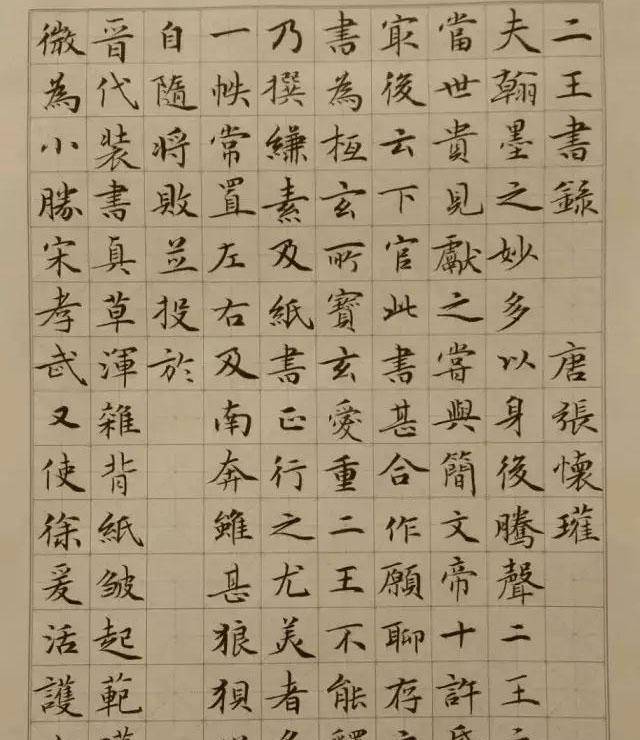 二王書錄 唐張懷瓘
夫翰墨之妙多以身後騰聲二王
當世貴見獻之嘗與簡文帝十許
冣後云下官此書甚合作願聊存
書為桓玄所寶玄愛重二王不能
乃撰縑素及紙書正行之尤美者
一帙常置左右及南奔雖甚狼狽
自隨將敗並投於
晉代裝書真草渾雜背紙皺起範
微為小勝宋孝武又使徐爰活護